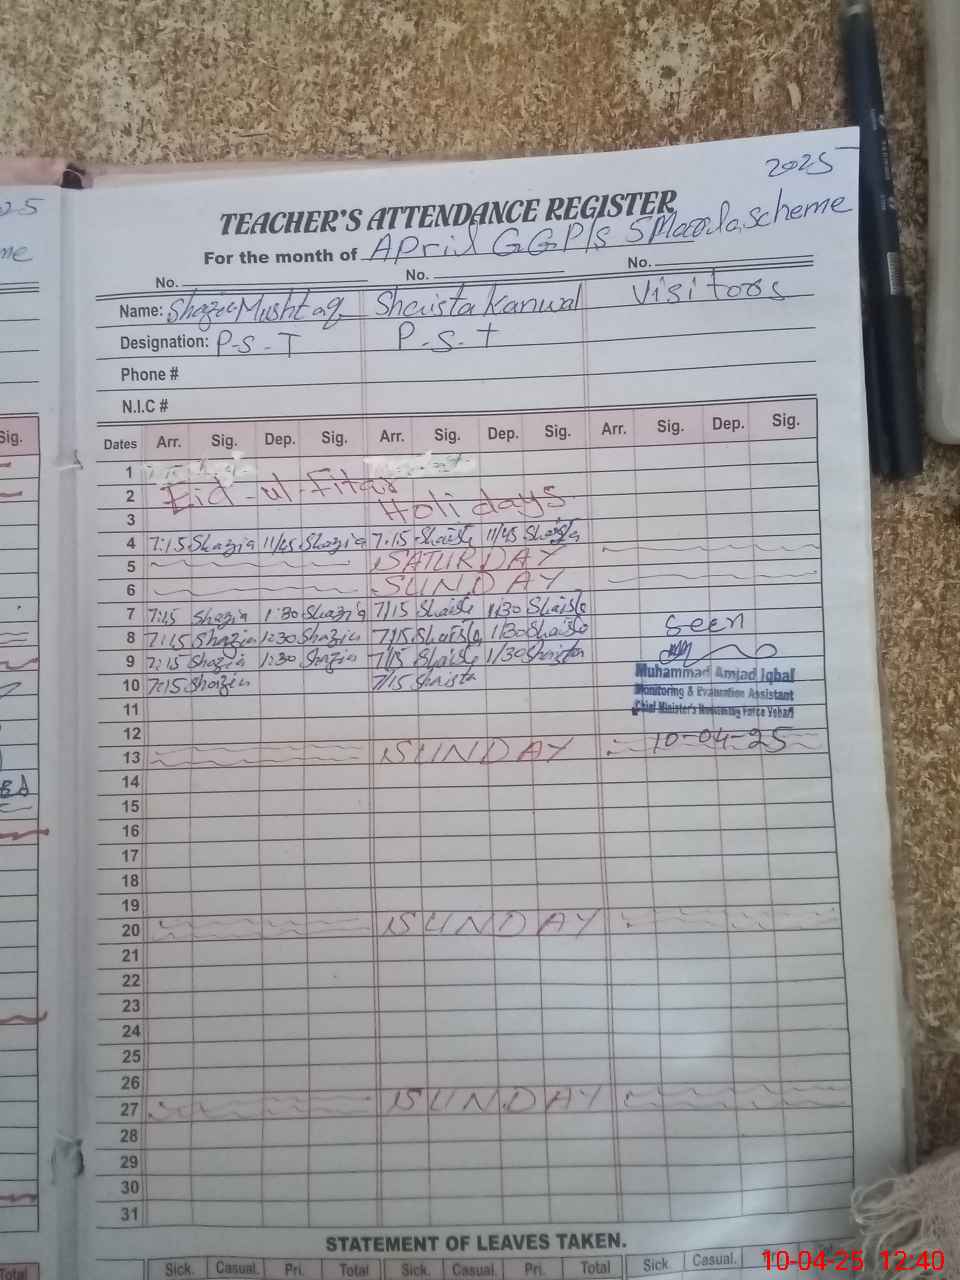 2025
TEACHER'S ATTENDANCE REGISTER
For the month of April GGP/s 5Marlascheme
No. No. No.
Name: Shazia Mushtaq Shaista Kanwal Visitors
Designation: P-S-T P.S.T
Phone #
N.I.C #
Dates Arr. Sig. Dep. Sig. Arr. Sig. Dep. Sig. Arr. Sig. Dep. Sig.
1
2 Eid-ul-Fitar
3 Holidays
4 7:15 Shazia 11/45 Shazia 7:15 Shaista 11/45 Shaista
5 SATURDAY
6 SUNDAY
7 7:15 Shazia 1:30 Shazia 7/15 Shaista 1:30 Shaista
8 7:15 Shazia 1:30 Shazia 7/15 Shaista 1/30 Shaista Seen
9 7:15 Shazia 1:30 Shazia 7/15 Shaista 1/30 Shaista
10 7:15 Shazia 7/15 Shaista Muhammad Amjad Iqbal
Monitoring & Evaluation Assistant
11 Chief Minister's Monitoring Force Vehari
12
13 SUNDAY 10-04-25
14
15
16
17
18
19
20 SUNDAY
21
22
23
24
25
26
27 SUNDAY
28
29
30
31
STATEMENT OF LEAVES TAKEN.
Sick. Casual. Pri. Total Sick. Casual. Pri. Total Sick. Casual.
10-04-25 12:40
25
me
Sig.
Total